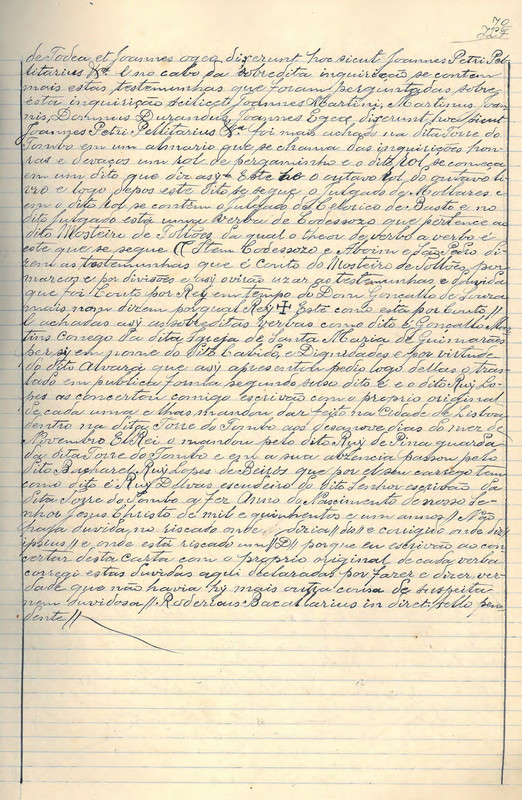 70
de Todea et Joannes egea dixerunt hoc sicut Joannes Petri Pel-
litarius &ª. E no cabo da sobredita inquirição se contem
mais estas testemunhas que foram perguntadas sobre
esta inquirição scilicet Joannes Martini, Martinus Joan-
nis, Dominus Durandus, Joannes Egea, dixerunt hoc sicut
Joannes Petri Pellitarius &ª foi mais achado na dita Torre do
Tombo em um almario que se chama das inquirições hon-
ras e devaços um rol de pergaminho e o dito Rol se começa
em um dito que diz asy Este he o oytavo Rol do oytavo li-
vro e logo depos este dito se segue o julgado de Molhares e
em o dito rol se contem o julgado de Celorico de Basto e no
dito julgado está uma verba de Codessozo que pertence ao
dito Mosteiro de Tolões da qual o theor de verbo a verbo é
este que se segue Item Codessozo e Aboim e São Pedro di-
zem as testemunhas que é couto do Mosteiro de Tolões per
marcos e por divisões e asy ovirão uzar as testemunhas e
que foi Couto por Rey em tempo de Dom Gonçallo de Souza
mais nom dizem por qual Rey ✝ Está como está por Couto //
E achadas asy as sobreditas verbas como dito é Gonçallo Mar-
tins Conego da dita Igreja de Santa Maria de Guimarães
per si e em nome do dito Cabido, e Dignidades e por virtude
do dito Alvará que asy apresentou pedio logo dellas o tras-
lado em publica forma segundo suso dito é e o dito Ruy Lo-
pes as concertou comigo escrivão com o proprio original
de cada uma e lhas mandou dar feito na Cidade de Lisboa
dentro na dita Torre do Tombo aos desanove dias do mez de
Novembro El Rei o mandou pelo dito Ruy de Pina guarda
da dita Torre do Tombo e em a sua abzencia passou pelo
dito Bacharel Ruy Lopes de Beiros que por el seu carrego tem
como dito é Ruy Delvas escudeiro do dito Senhor escrivão da
dita Torre do Tombo a fez Anno do Nascimento de nosso Se-
nhor Jesus Christo de mil e quinhentos e um annos // Não
haja duvida no riscado onde dizia // do // e corrigido onde diz //
ipsius // e onde está riscado um // D // porque eu escrivão ao con-
certar desta carta com o proprio original de cada verba
corregi estas duvidas aqui declaradas por fazer e dizer ver-
dade que não havia hy mais outra cousa de suspeita
nem duvidosa // Rodericus Bacallarius in sello pen-
dente //